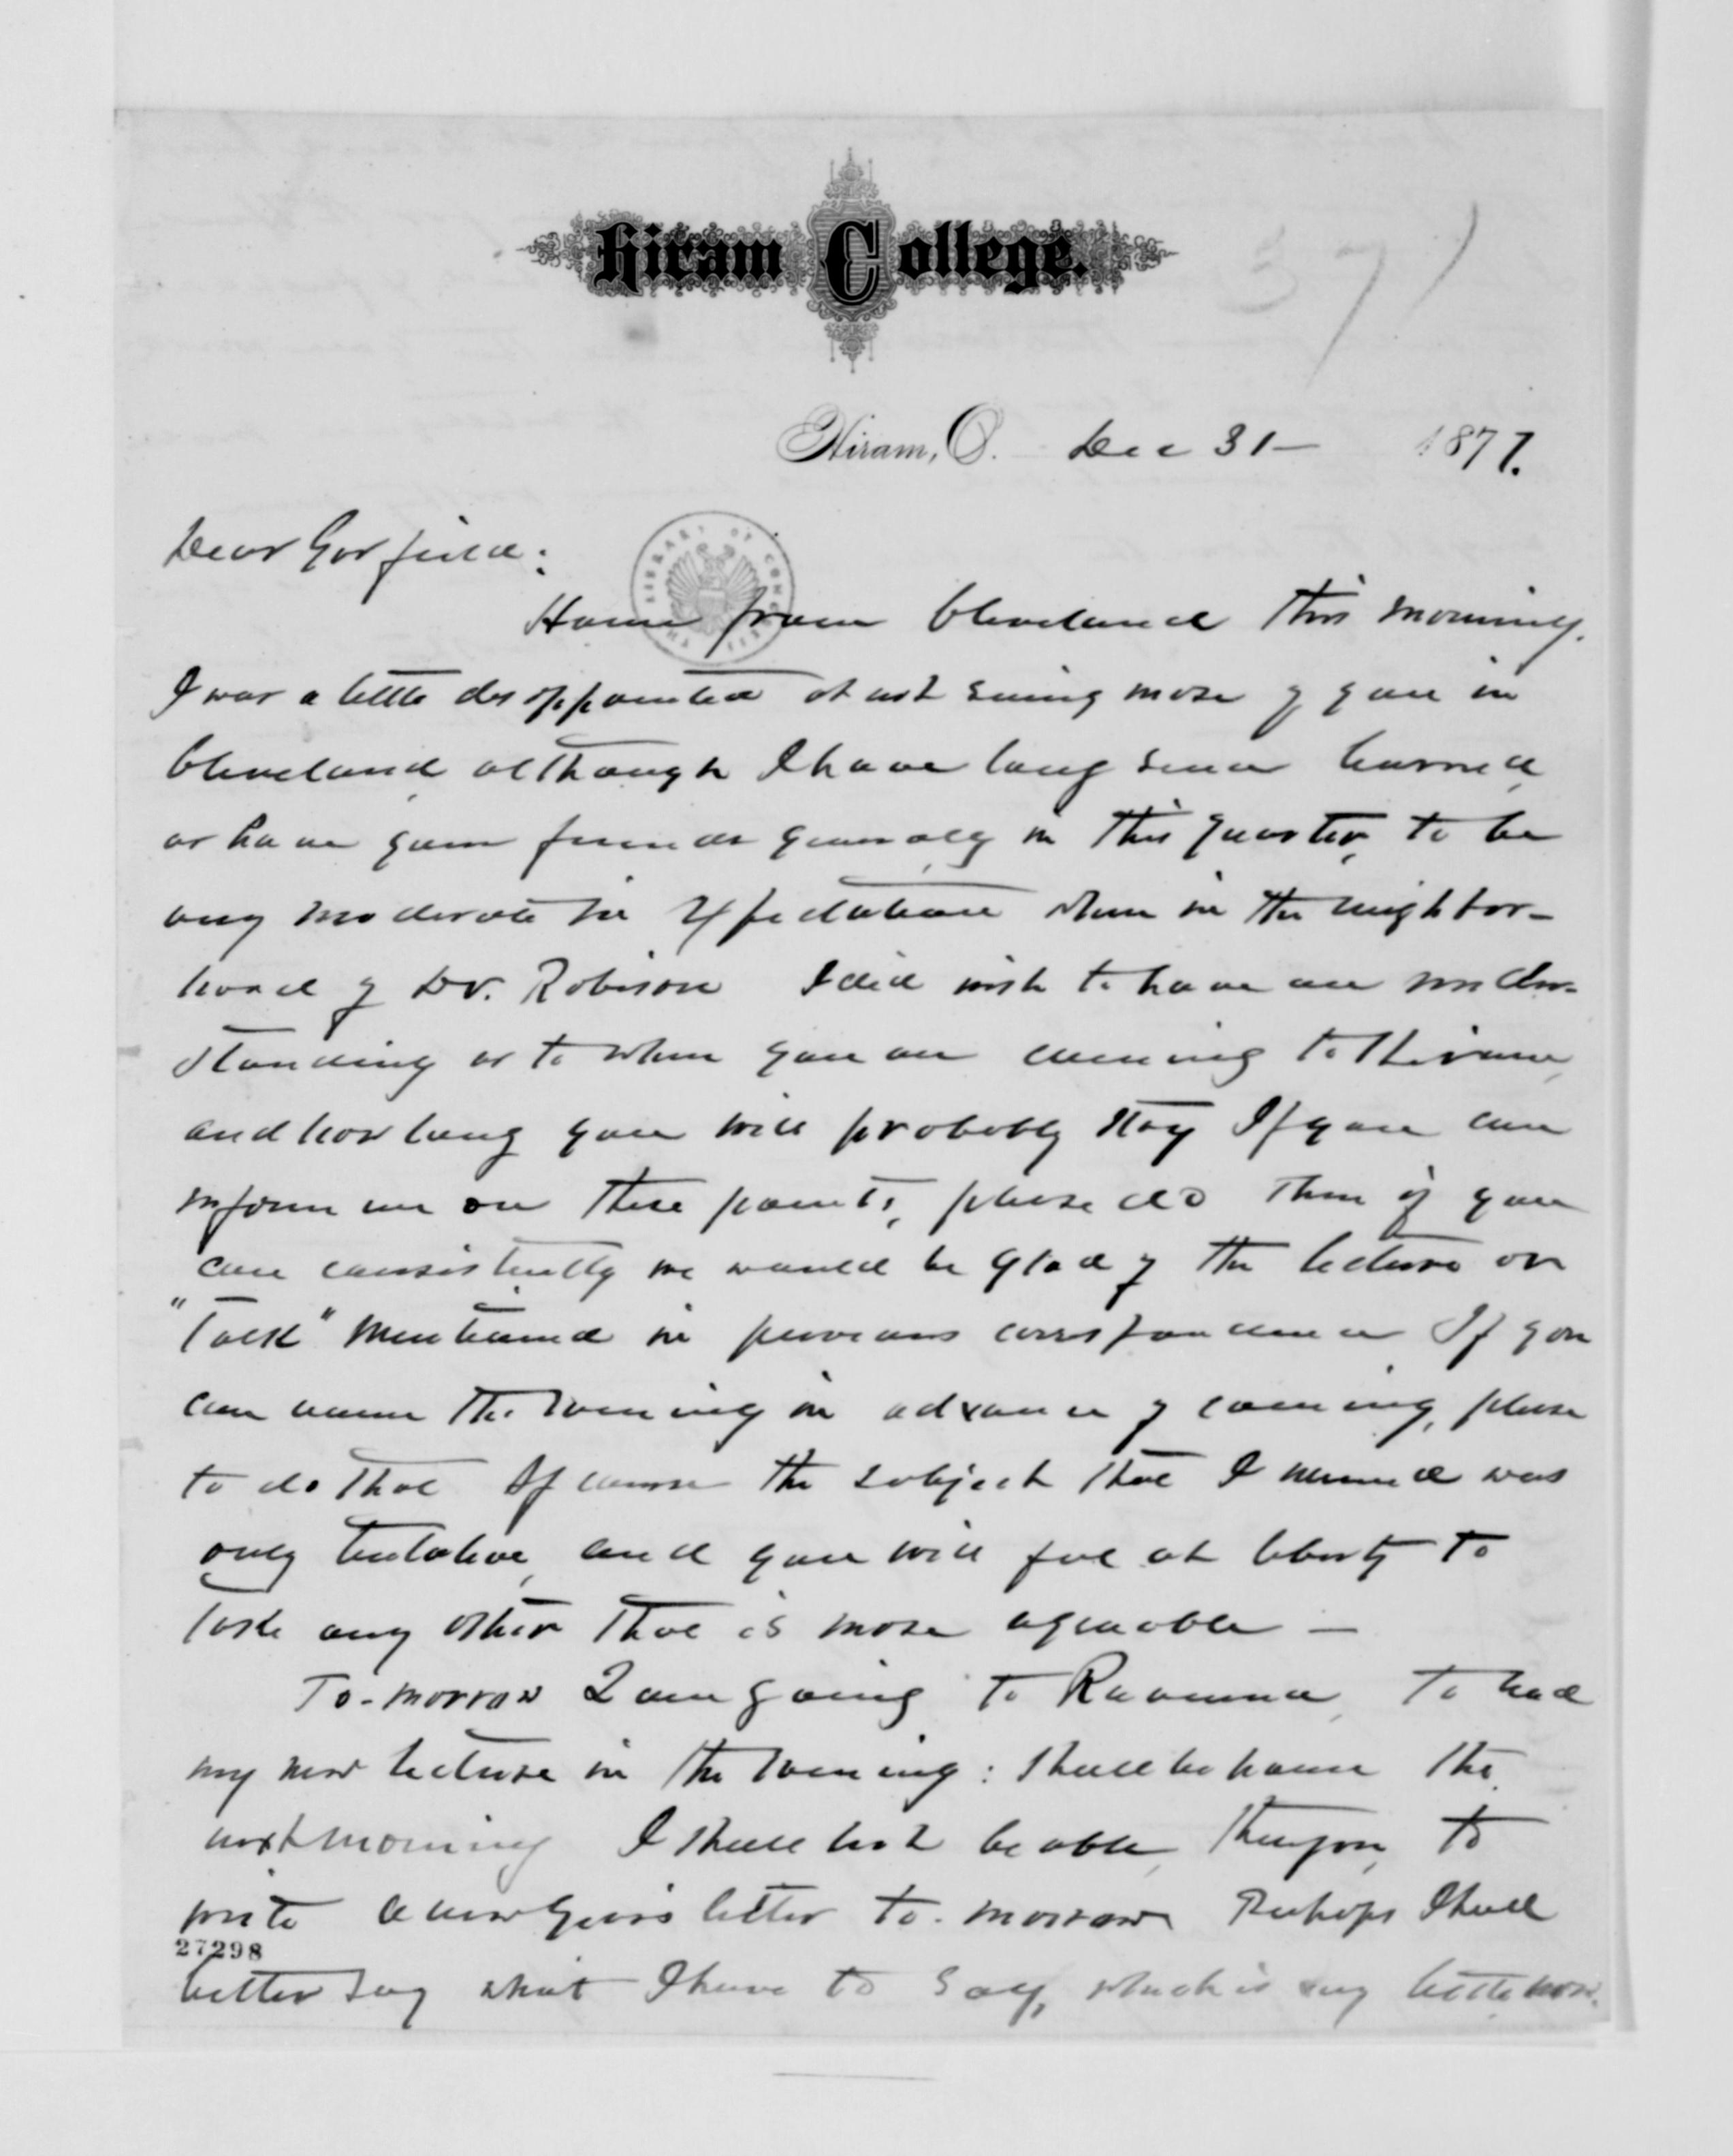 Hiram College.
371
Hiram, O. Dec 31 - 1877.
Dear Garfield:
THE LIBRARY OF CONGRESS
Home from Cleveland this morning.
I was a little disappointed at not seeing more of you in
Cleveland although I have long since learned,
as have your friends generally in this quarter, to be
very moderate in expectation when in the neighbor-
hood of Dr. Robison I did wish to have an under-
standing as to when you are coming to Hiram,
and how long you will probably stay If you can
inform me on these points, please do Then if you
can consistently we would be glad of the lecture or
"Talk" mentioned in previous correspondence If you
can name the evening in advance of coming, please
to do that Of course the subject that I named was
only tentative, and you will feel at liberty to
take any other that is more agreeable -
To-morrow I am going to Ravenna, to read
my new lecture in the evening: shall be home the
next morning I shall not be able, therefore, to
write a new years letter to-morrow Perhaps I had
27298
better say what I have to say, which is very little now.